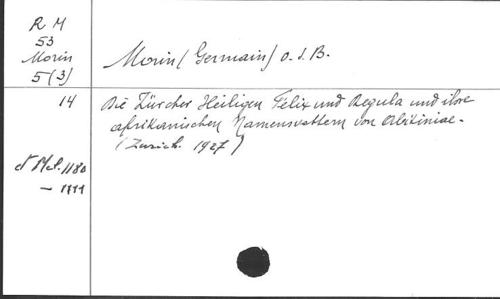 R M
53
Morin
5(3)
Morin (Germain) O.S.B.
14
Die Zürcher Heiligen Felix und Regula und ihre
afrikanischen Namensvettern von Abitiniae.
(Zurich 1927)
Mel. 1180